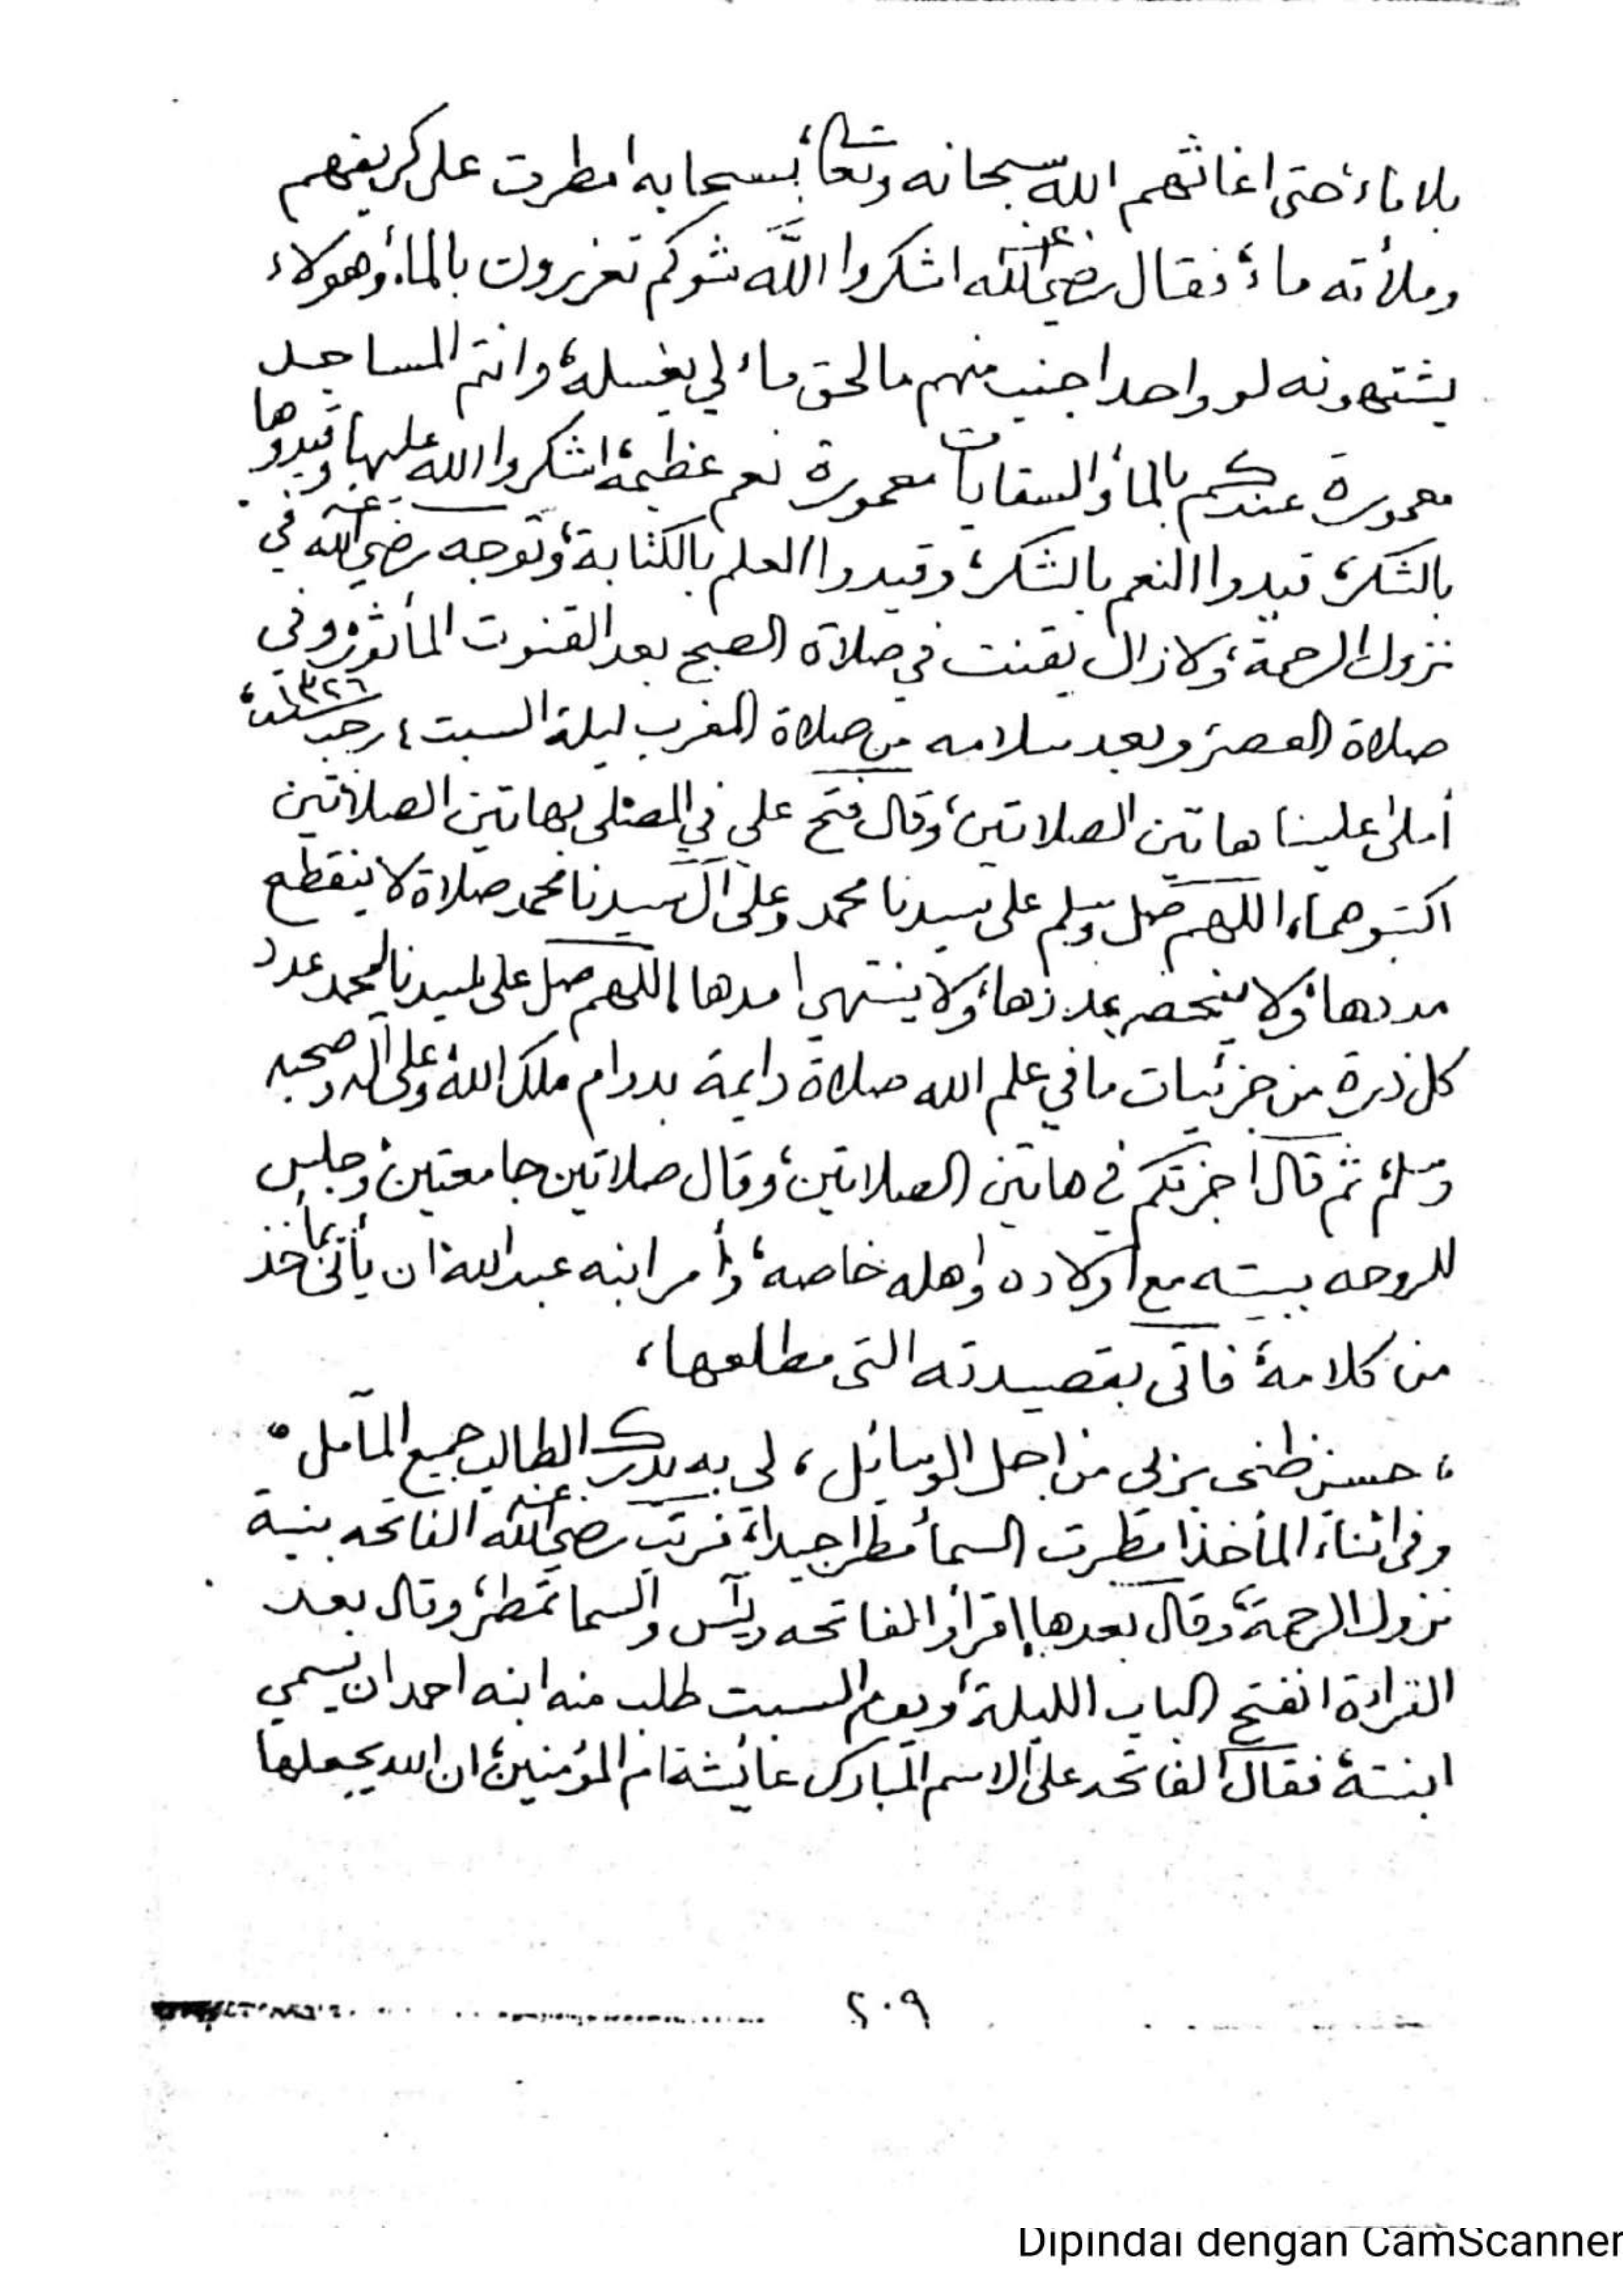 بلا ماء، حتى اغاثهم الله سبحانه وتعالى، بسحابه امطرت على كريفهم
وملأته ماء، فقال رضي الله عنه اشكروا الله شوكم تغزرون بالماء، وهولاء
يشتهونه لو واحد اجنب منهم ما لحق ماء لي يغسله، وانتم المساجد
معمورة عندكم بالماء والسقايات معمورة نعم عظيمة، اشكروا الله عليها وقيدوها
بالشكر، قيدوا النعم بالشكر، وقيدوا العلم بالكتابة، وتوجه رضي الله عنه في
نزول الرحمة، ولا زال يقنت في صلاة الصبح بعد القنوت المأثور، وفي
صلاة العصر، وبعد سلامه من صلاة المغرب ليلة السبت ٤ رجب سنة ١٣٢٦،
أملى علينا هاتين الصلاتين، وقال فتح علي في المصلى بهاتين الصلاتين
اكتبوهما، اللهم صل وسلم على سيدنا محمد وعلى آل سيدنا محمد صلاة لا ينقطع
مددها، ولا ينحصر عددها، ولا ينتهي امدها، اللهم صل على سيدنا محمد عدد
كل ذرة من جزئيات ما في علم الله صلاة دايمة بدوام ملك الله، وعلى آله وصحبه
وسلم، ثم قال اجزتكم في هاتين الصلاتين، وقال صلاتين جامعتين، وجلس
للروحه ببيته مع اولاده واهله خاصه، وأمر ابنه عبدالله ان يأتي بمأخذ
من كلامه، فاتى بقصيدته التي مطلعها،
، حسن ظني بربي من اجل الوسائل ، لي به يدرك الطالب جميع المآمل ،
وفي اثناء المأخذ امطرت السماء مطرا جيدا، فرتب رضي الله عنه الفاتحه بنية
نزول الرحمة، وقال بعدها إقرأوا الفاتحه ويس والسما تمطر، وقال بعد
القراءة انفتح الباب الليلة، ويوم السبت طلب منه ابنه احمد ان يسمي
ابنته، فقال الفاتحه على الاسم المبارك عائشة ام المؤمنين، ان الله يجعلها
٢٠٩
Dipindai dengan CamScanner